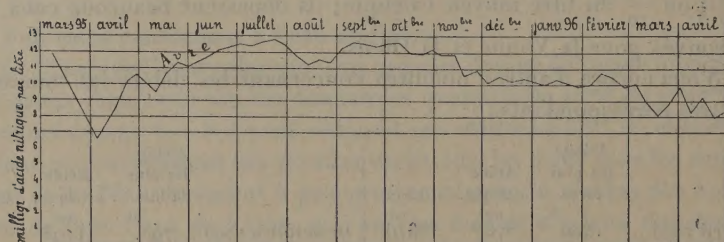 mars 95 avril mai juin juillet août sept bre oct bre nov bre déc bre janv 96 février mars avril
milligr d'acide nitrique par litre
13
12
11
10
9
8
7
6
5
4
3
2
1
Avre